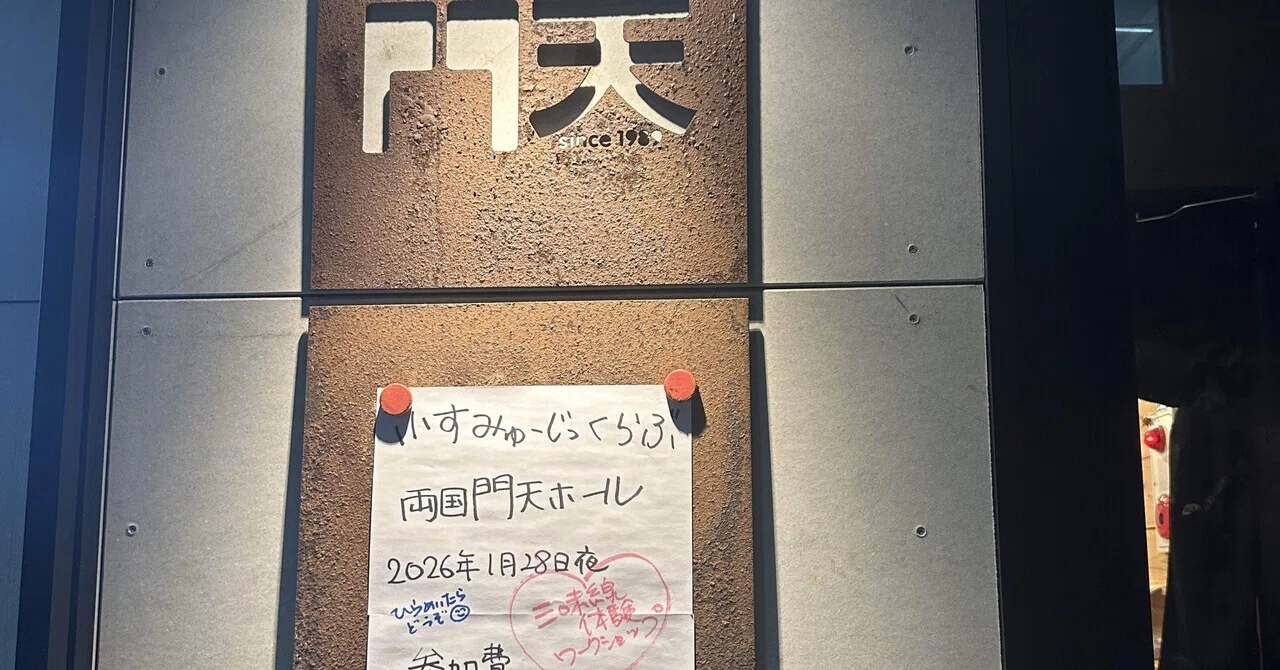 門天
since 1989
ふすみゅーじっくらぶ
両国門天ホール
2026年1月28日夜
ひらめいたら
どうぞ
三味線
体験
ワークショップ。
参加費